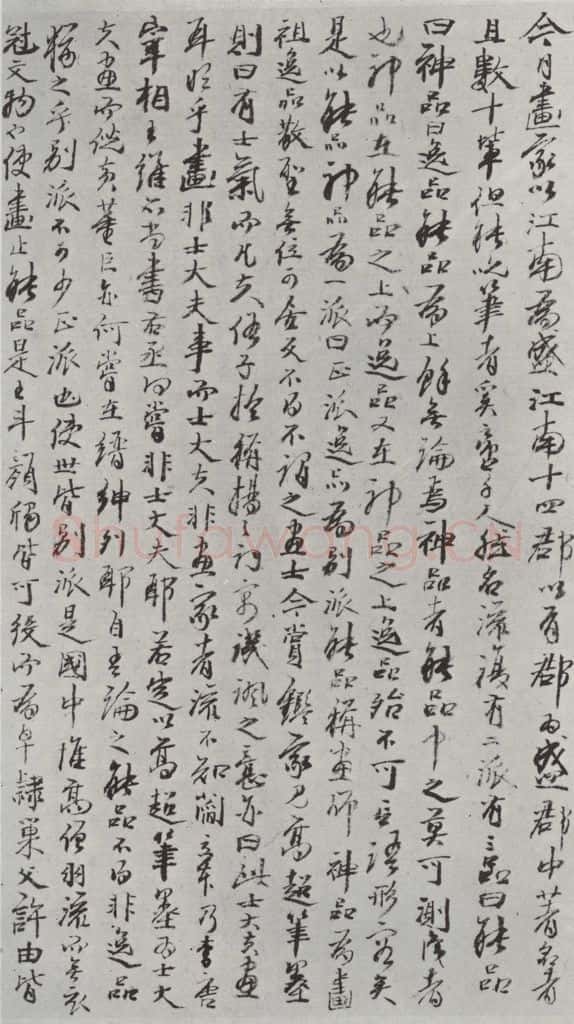 今日畫家以江南為盛江南十四郡以首郡為盛郡中著名者
且數十輩但能吮筆者奚啻千人然名流復有二派有三品曰能品
曰神品曰逸品能品為上餘無論焉神品者能品中之莫可測識者
也神品在能品之上而逸品又在神品之上逸品殆不可言語形容矣
是以能品神品為一派曰正派逸品為別派能品稱畫師神品為畫
祖逸品散聖無位可居反不得不謂之畫士今賞鑑家見高超筆墨
則曰有士氣而凡夫俗子於稱揚之詞寓譏諷之意亦曰此士大夫畫
耳明乎畫非士大夫事而士大夫非畫家者流不知閻立本乃李唐
宰相王維亦尚書右丞何嘗非士大夫耶若定以高超筆墨為士大
夫畫而倪黃董巨亦何嘗在縉紳列耶自吾論之能品不得非逸品
猶之乎別派不可少正派也使世皆別派是國中惟高僧羽流而無衣
冠文物也使畫止能品是王斗顏斶皆可役而為皁隸巢父許由皆
Shufawang.CN